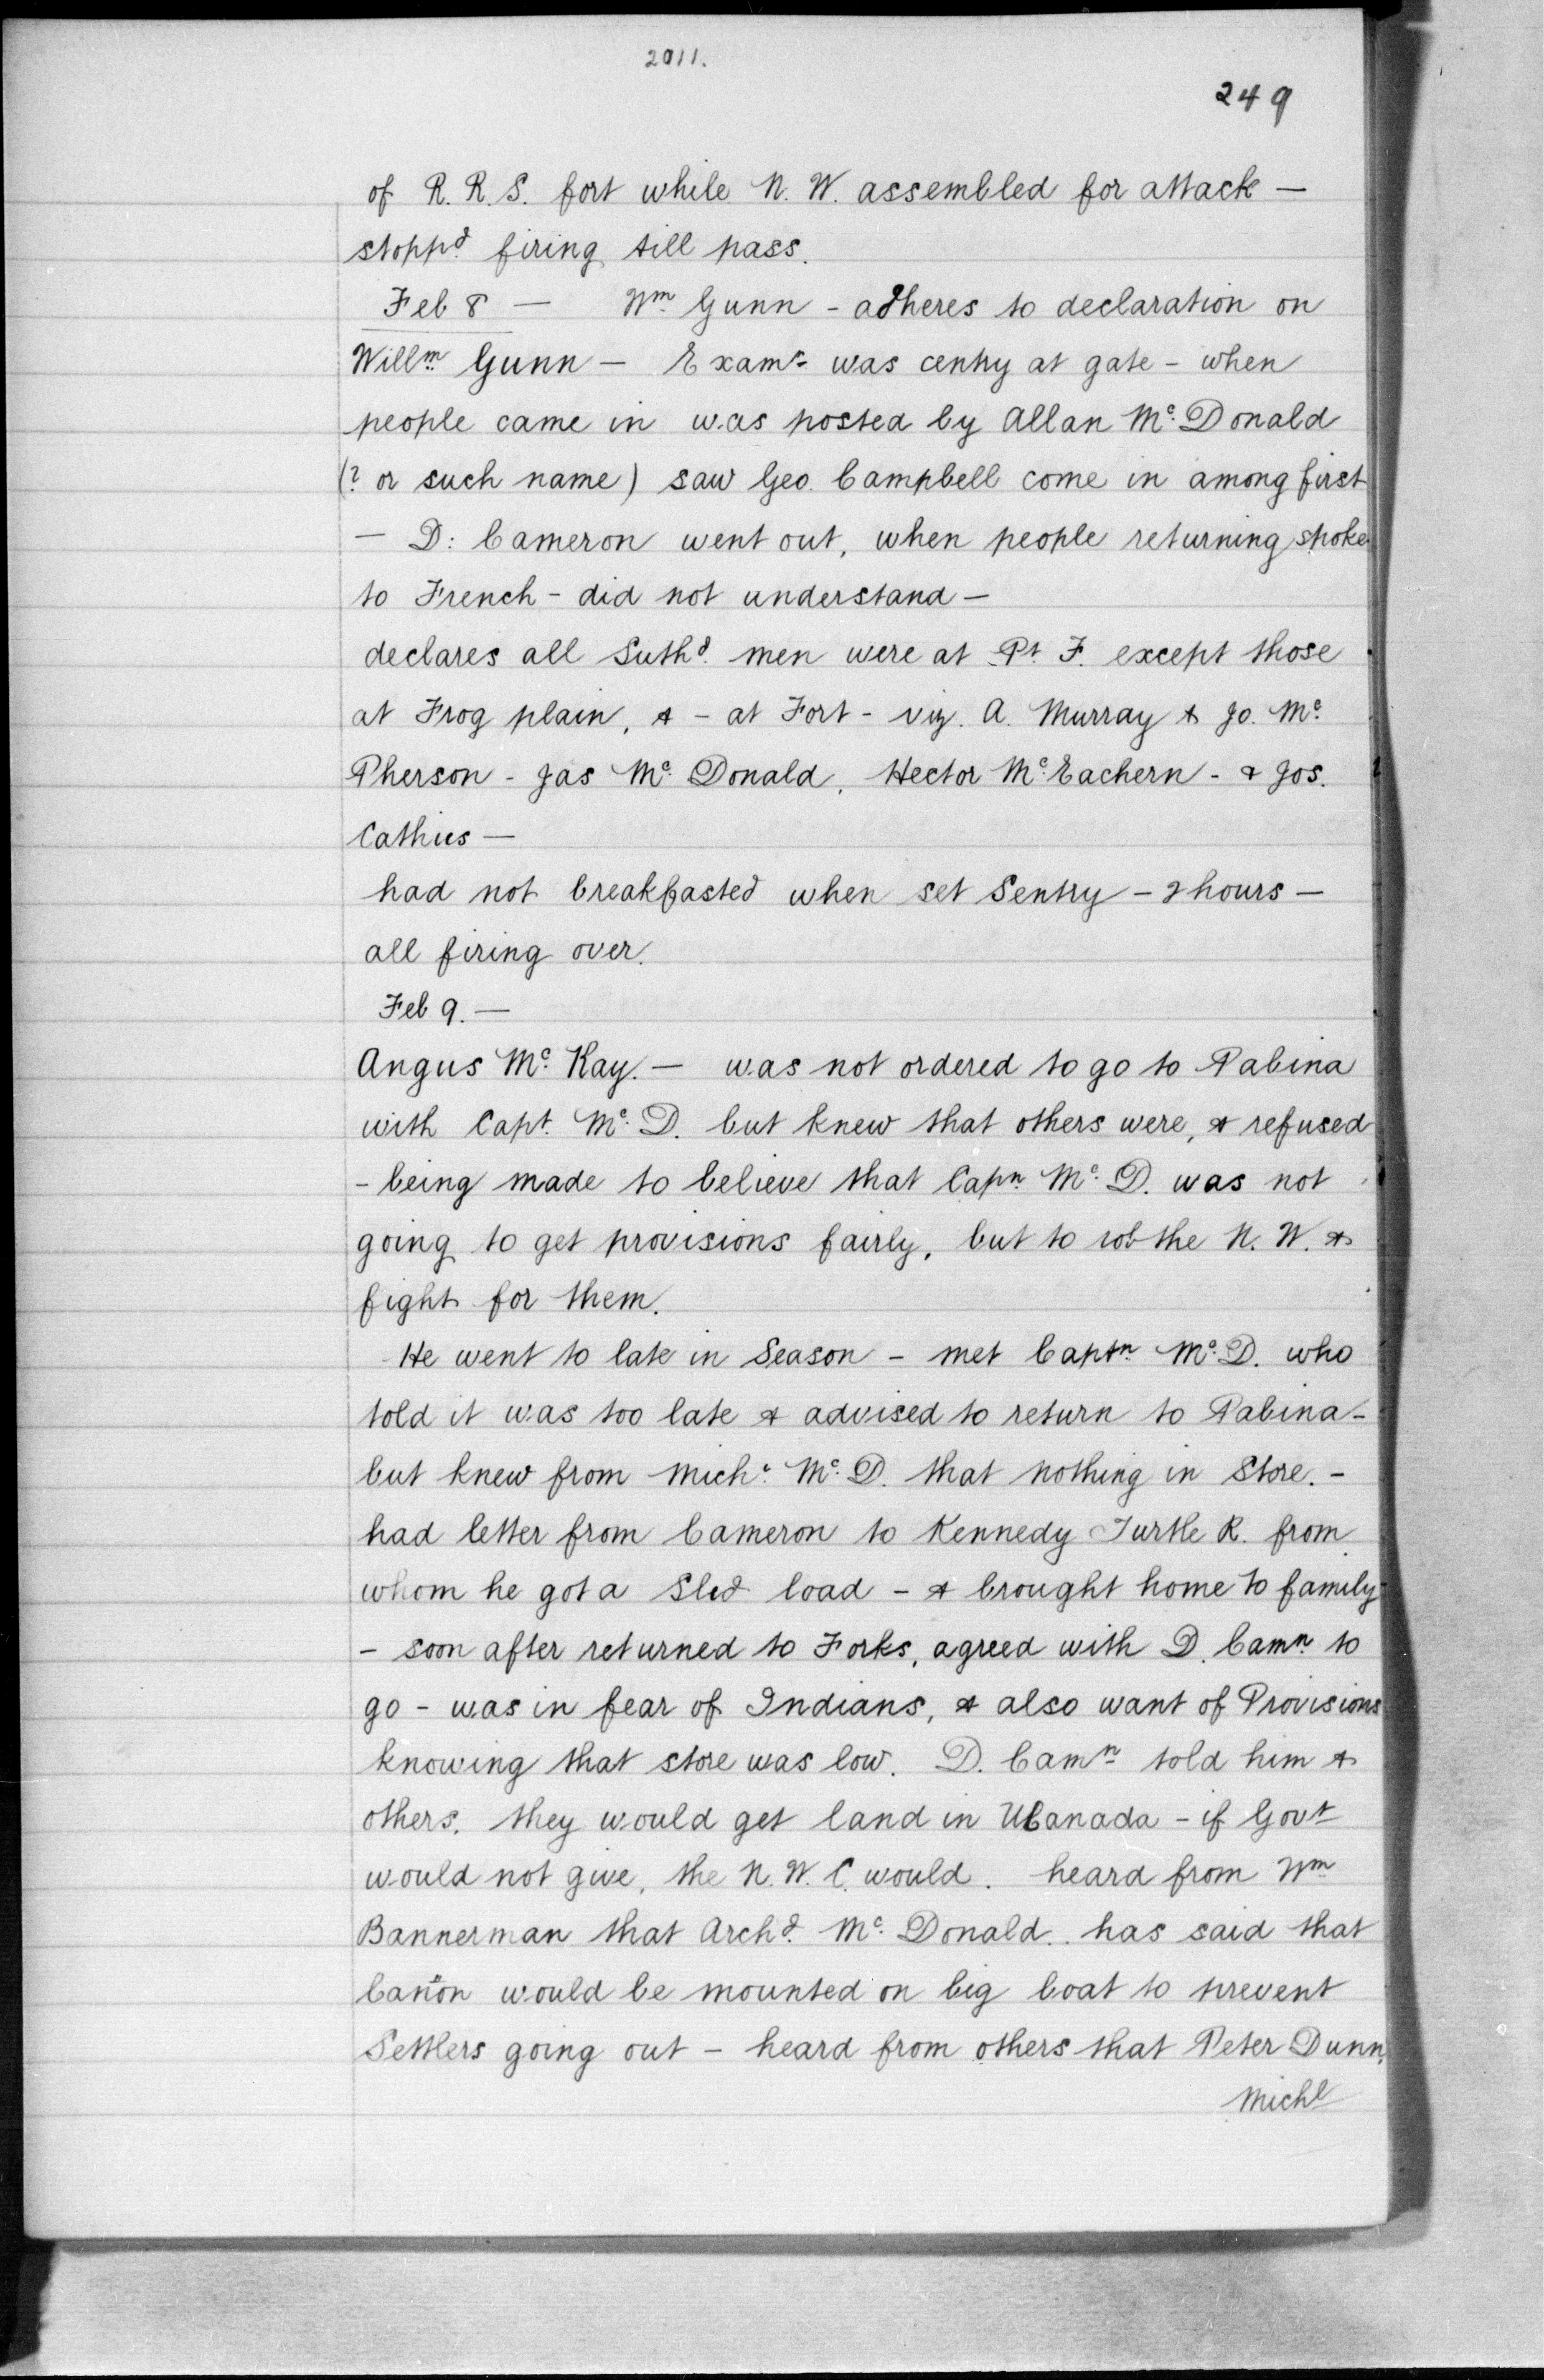 2011.
249
of R. R. S. fort while N. W. assembled for attack —
stoppd. firing till pass.
Feb 8 — Wm. Gunn - adheres to declaration on
Willm. Gunn — Examn. was centry at gate - when
people came in was posted by Allan Mc. Donald
(? or such name) saw Geo. Campbell come in among first
— D: Cameron went out, when people returning spoke
to French - did not understand —
declares all Suthd. men were at Pt. F. except those
at Frog plain, & - at Fort - viz. A. Murray & Jo. Mc.
Pherson - Jas Mc. Donald, Hector Mc. Eachern - & Jos.
Cathus —
had not breakfasted when set Sentry - 2 hours —
all firing over.
Feb 9. —
Angus Mc. Kay. — was not ordered to go to Pabina
with Capt. Mc. D. but knew that others were, & refused
- being made to believe that Capn Mc. D. was not
going to get provisions fairly, but to rob the N. W. &
fight for them.
He went to late in Season - met Captn. Mc. D. who
told it was too late & advised to return to Pabina -
but knew from Miche. Mc. D. that nothing in Store. -
had letter from Cameron to Kennedy Turtle R. from
whom he got a Sled load - & brought home to family
- soon after returned to Forks, agreed with D. Camn. to
go - was in fear of Indians, & also want of Provisions
knowing that store was low. D. Camn told him &
others, they would get land in UCanada - if Govt
would not give, the N. W. C. would. heard from Wm
Bannerman that Archd. Mc. Donald.. has said that
Cañon would be mounted on big boat to prevent
Settlers going out - heard from others that Peter Dunn,
Michl